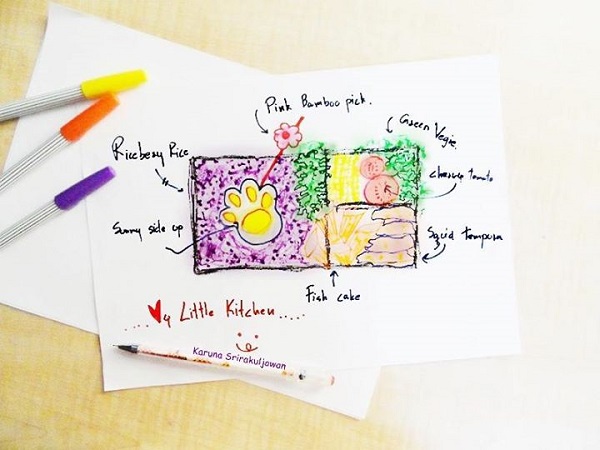 Pink Bamboo pick.
Green Vegie.
Riceberry Rice
cherry tomato
Sunny side up
Squid tempura
Fish cake
....My Little Kitchen.....
Karuna Srirakuljawan